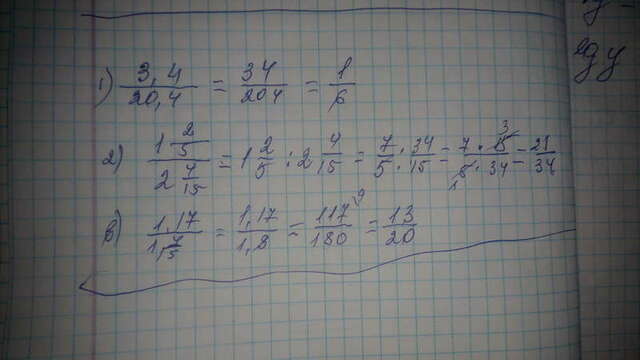 1) 3,4/20,4 = 34/204 = 1/6
2) 1 2/5 / 2 4/15 = 1 2/5 : 2 4/15 = 7/5 : 34/15 = 7 · 15 3 / 1 5 · 34 = 21/34
в) 1,17 / 1 4/5 = 1,17/1,8 = 117/180 9 = 13/20